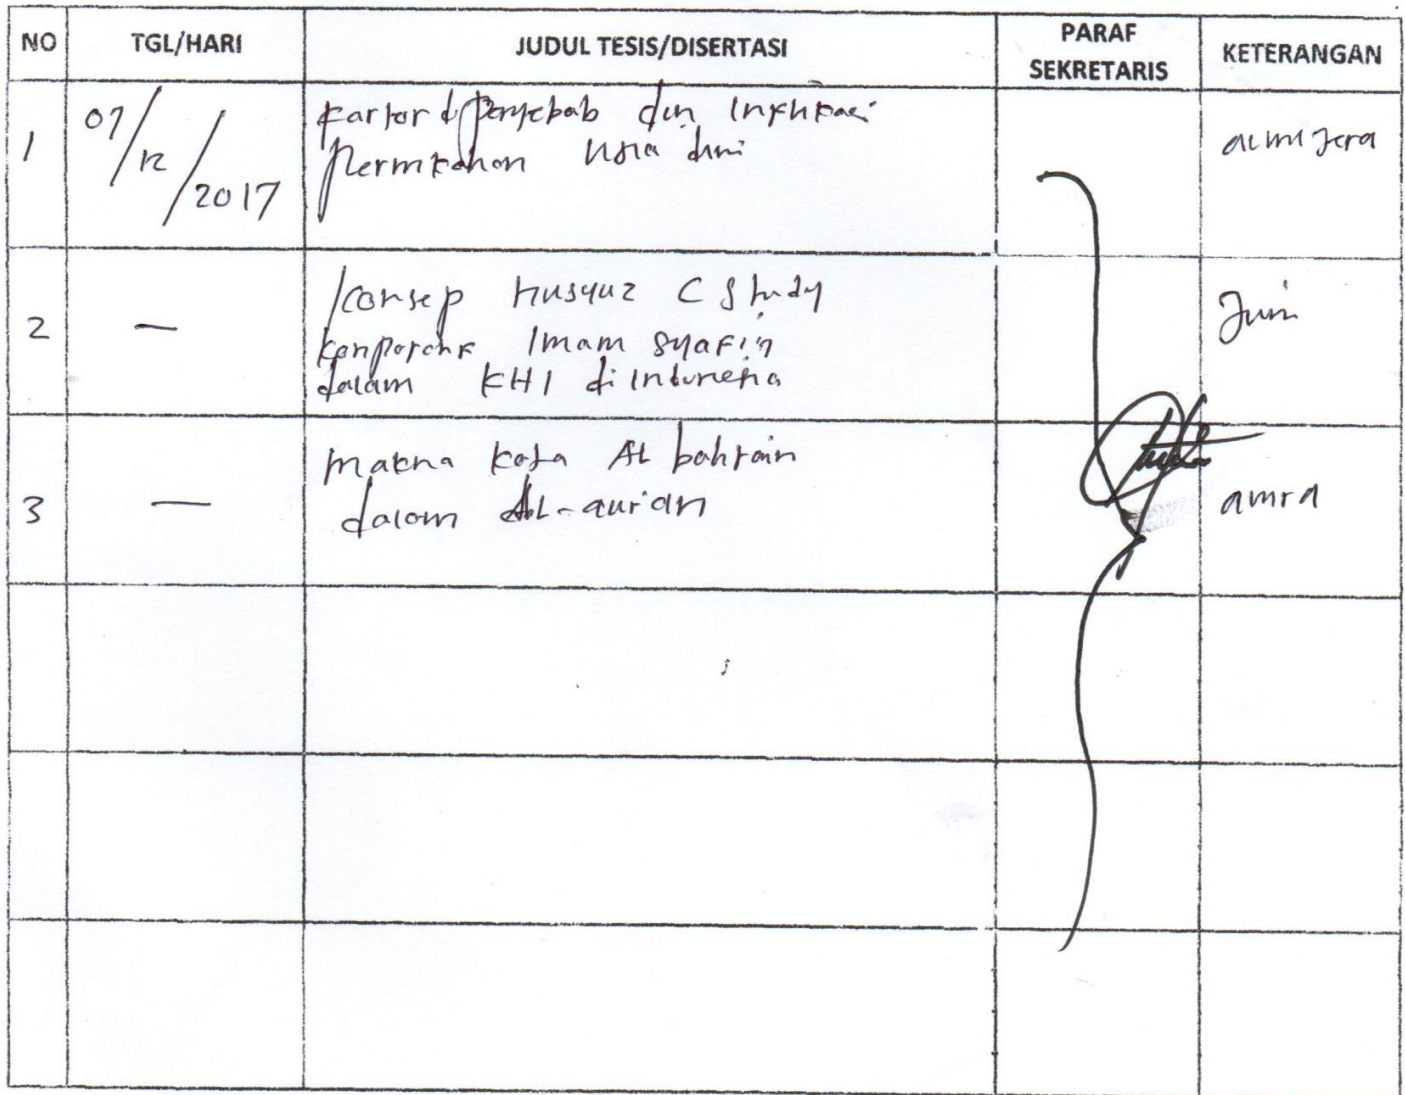 NO TGL/HARI JUDUL TESIS/DISERTASI PARAF SEKRETARIS KETERANGAN
1 07/12/2017 Faktor penyebab dan
Pernikahan usia dini
2 — Konsep Nusyuz ( Study
Imam Syafi'i
dalam KHI di Indonesia
Juni
3 — Makna kata Al bahrain
dalam Al-qur'an
amra